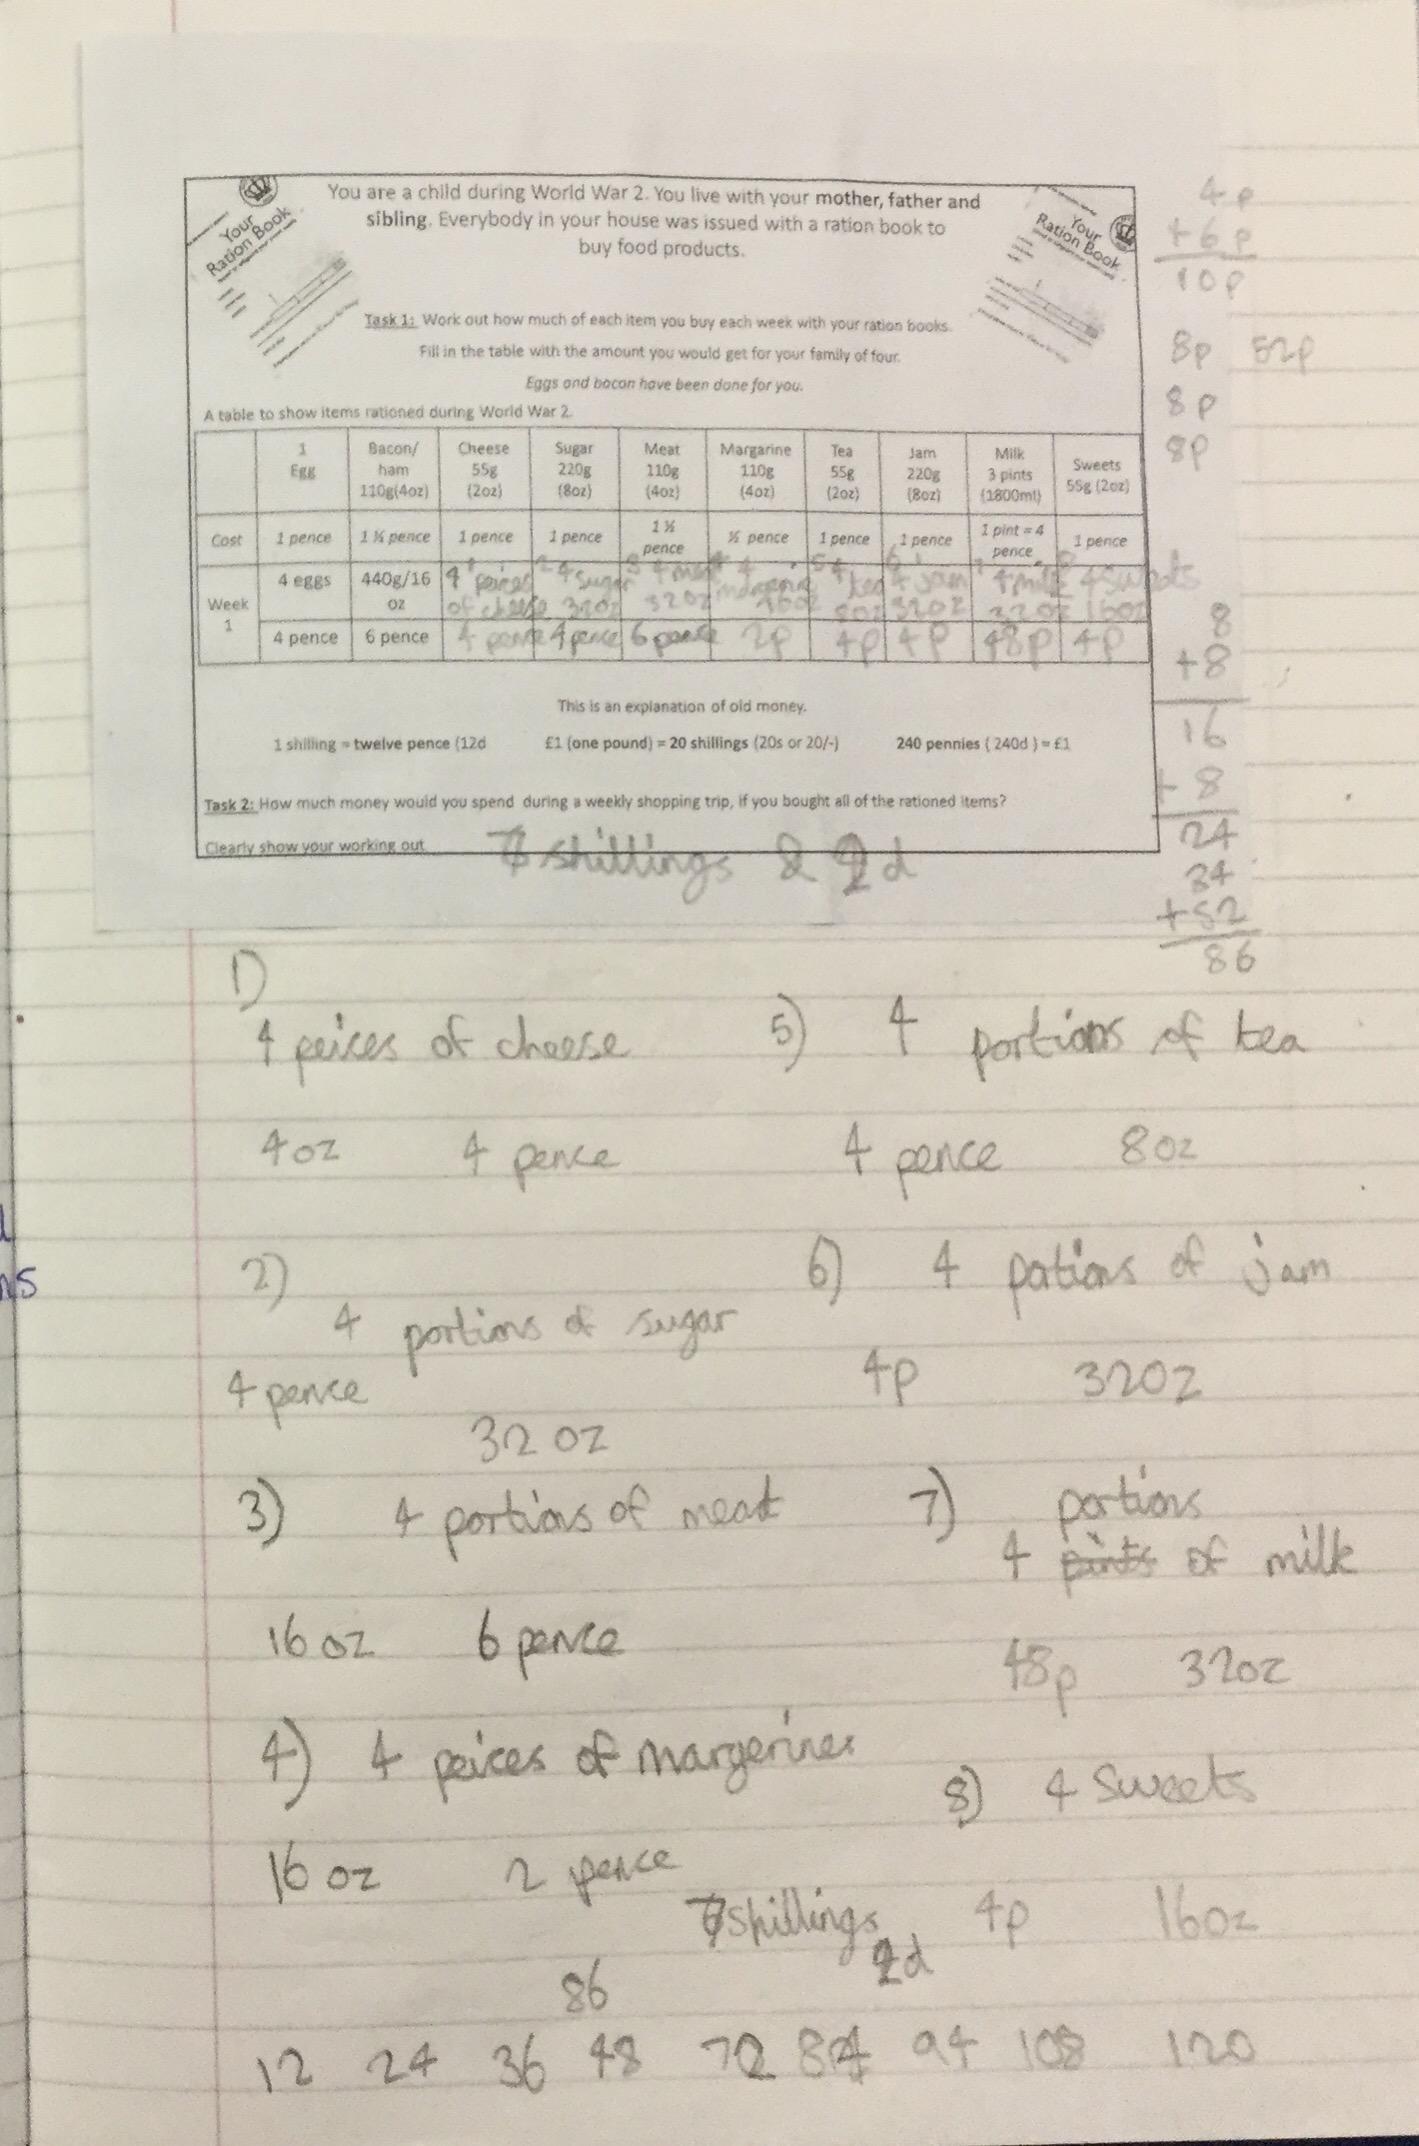 Your
Ration Book
You are a child during World War 2. You live with your mother, father and
sibling. Everybody in your house was issued with a ration book to
buy food products.
Your
Ration Book
Task 1: Work out how much of each item you buy each week with your ration books.
Fill in the table with the amount you would get for your family of four.
Eggs and bacon have been done for you.
A table to show items rationed during World War 2.
1 Egg
Bacon/ ham 110g(4oz)
Cheese 55g (2oz)
Sugar 220g (8oz)
Meat 110g (4oz)
Margarine 110g (4oz)
Tea 55g (2oz)
Jam 220g (8oz)
Milk 3 pints (1800ml)
Sweets 55g (2oz)
Cost 1 pence 1 ½ pence 1 pence 1 pence 1 ½ pence ½ pence 1 pence 1 pence 1 pint = 4 pence 1 pence
Week 1
4 eggs 440g/16 oz 4 peices of cheese 4 sugar 32oz 4 meat 32oz 4 margerine 16oz 4 tea 8oz 4 jam 32oz 4 milk 32oz 4 sweets 16oz
4 pence 6 pence 4 pence 4 pence 6 pence 2p 4p 4p 48p 4p
This is an explanation of old money.
1 shilling = twelve pence (12d £1 (one pound) = 20 shillings (20s or 20/-) 240 pennies ( 240d ) = £1
Task 2: How much money would you spend during a weekly shopping trip, if you bought all of the rationed items?
Clearly show your working out
7 shillings & 2d
4p
+6p
10p
8p 52p
8p
8p
8
+8
16
+8
24
34
+52
86
1)
4 peices of cheese
4oz 4 pence
2)
4 portions of sugar
4 pence
32 oz
3) 4 portions of meat
16 oz 6 pence
4) 4 peices of margerines
16 oz 2 pence
5) 4 portions of tea
4 pence 8oz
6) 4 potions of jam
4p 32oz
7) portions
4 pints of milk
48p 32oz
8) 4 Sweets
4p 16oz
7 shillings
2d
86
12 24 36 48 72 84 94 108 120
ns